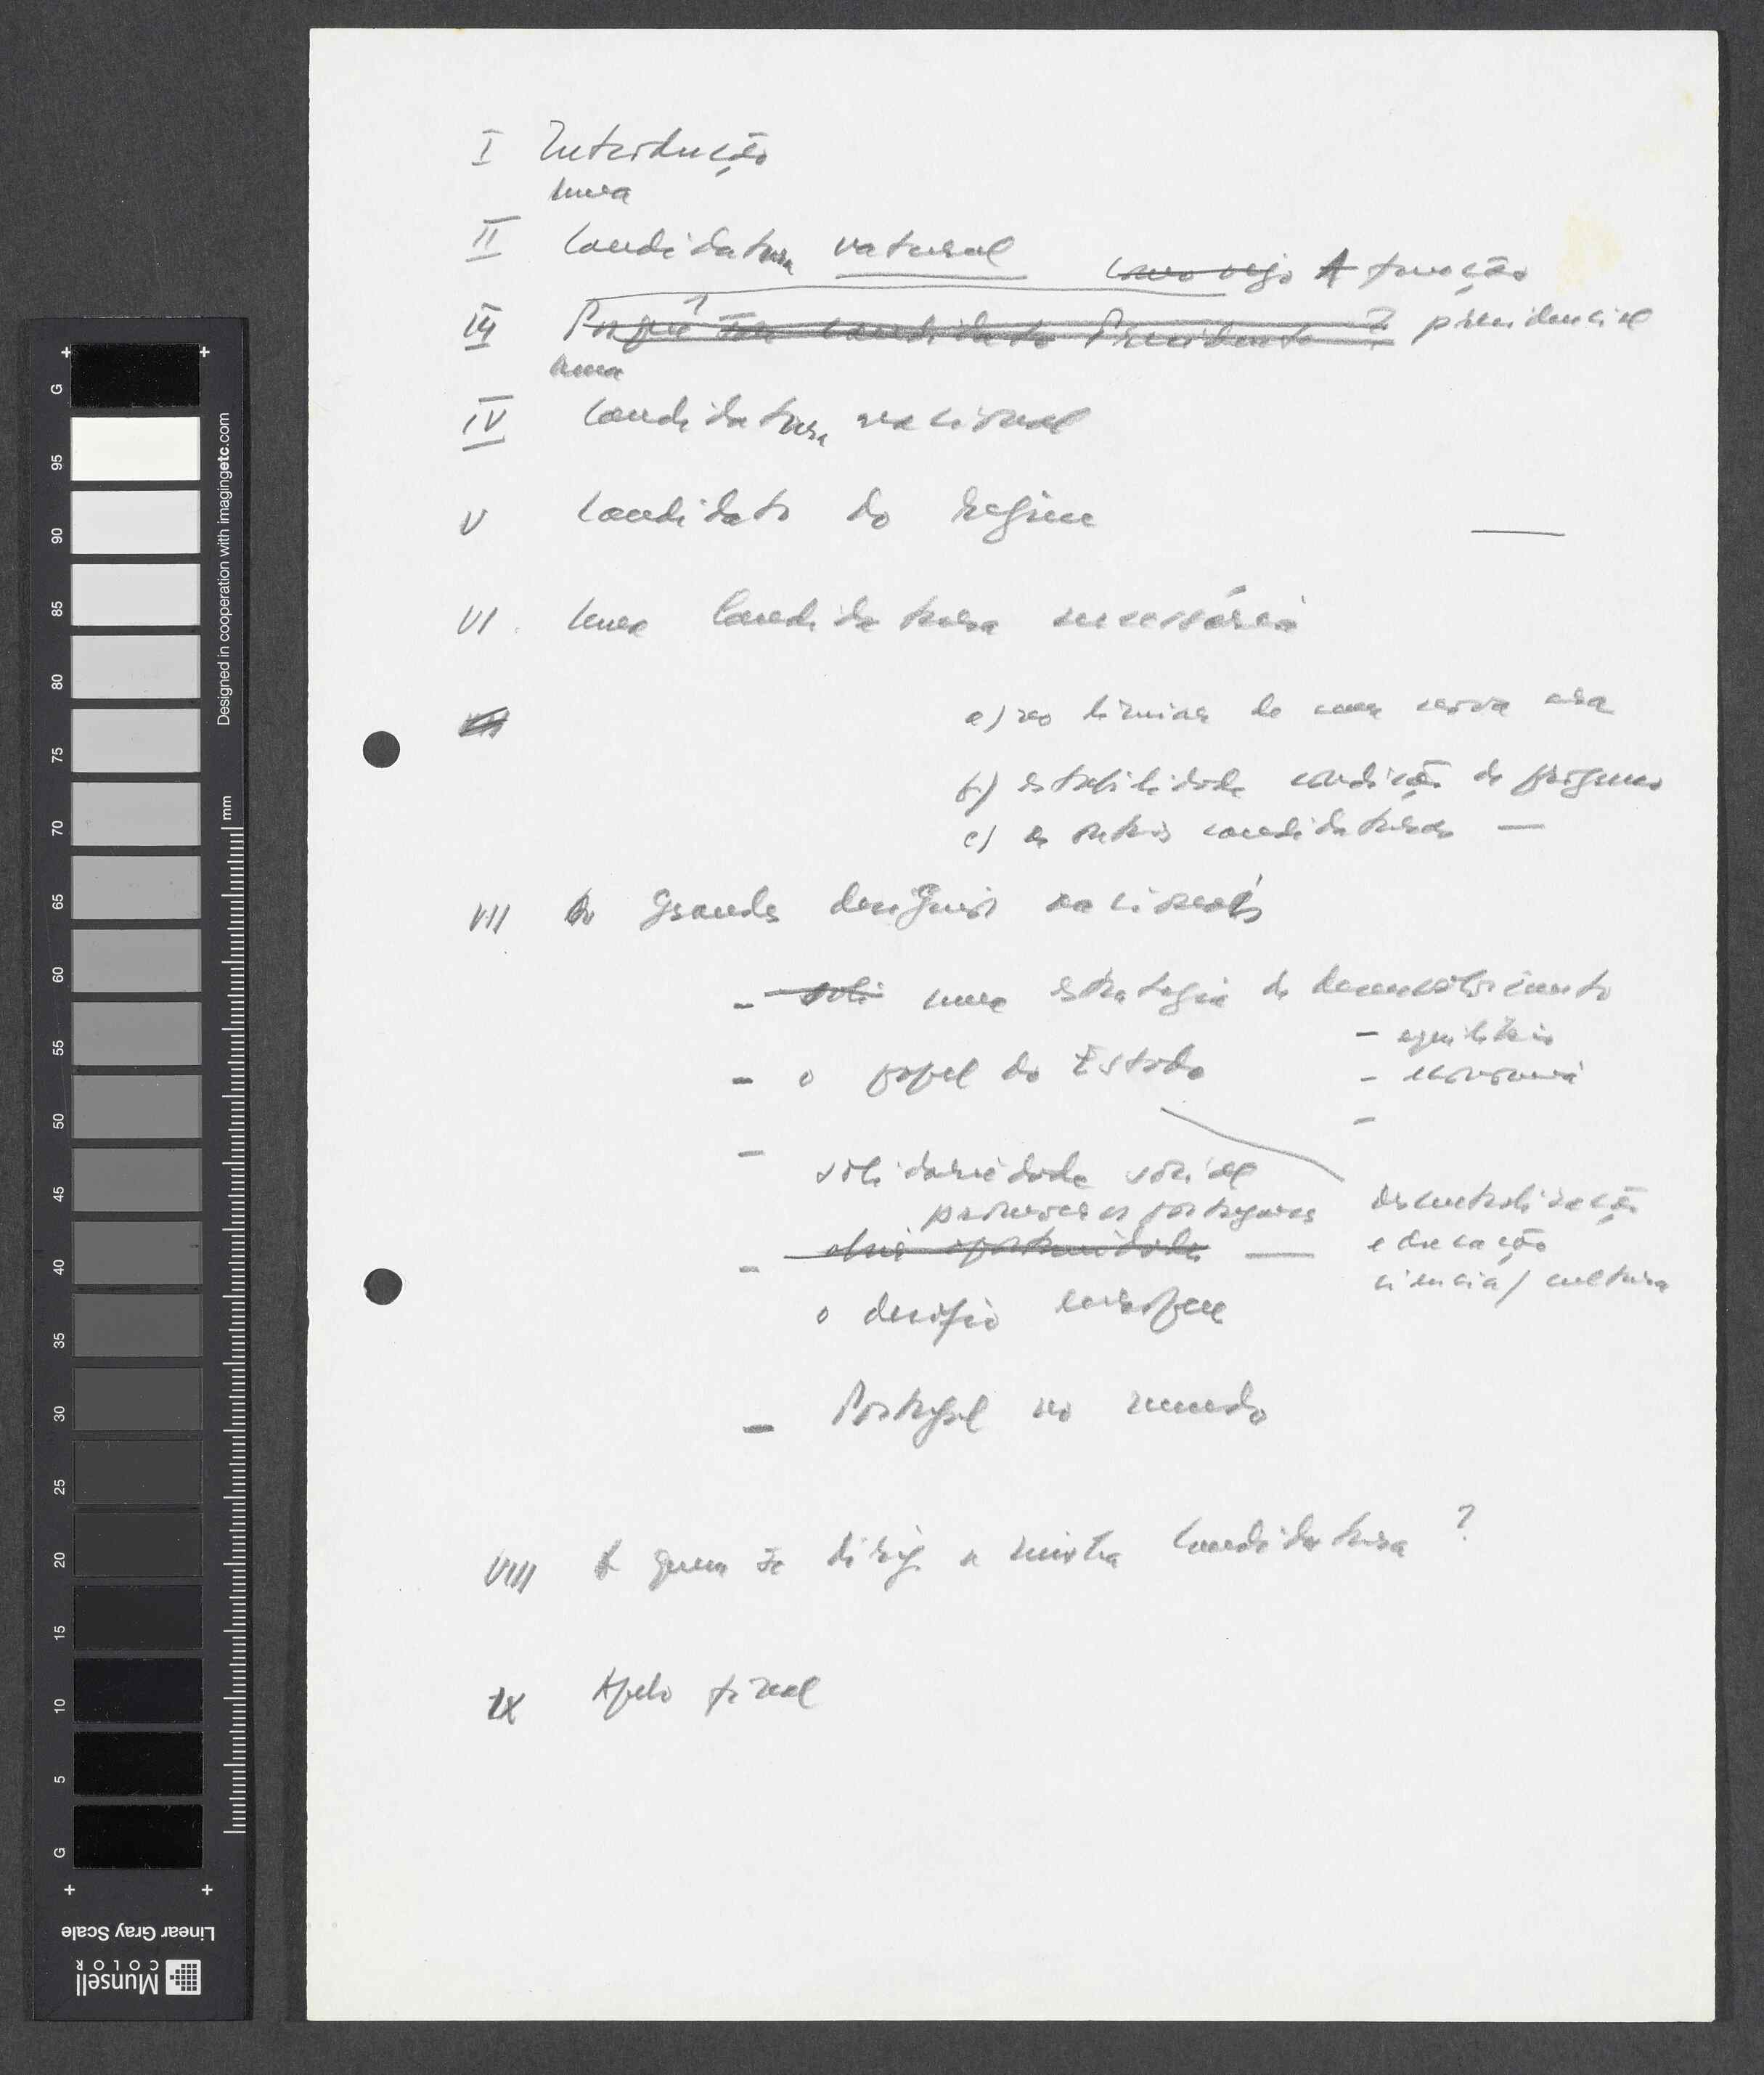 I Introdução
uma
II Candidatura natural
como vejo A função
III Porquê ser candidato Presidente ? presidencial
uma
IV Candidatura nacional
V Candidato do regime
VI uma Candidatura necessária
a) no limiar de uma nova era
b) estabilidade condição de progresso
c) as outras candidaturas —
VII Os Grandes desígnios nacionais
- soli uma estratégia de desenvolvimento
- equilíbrio
- o papel do Estado
- economia
-
- solidariedade social
promover os portugueses descentralização
- oportunidades — educação
ciência / cultura
o desafio europeu
- Portugal no mundo
VIII A quem se dirige a minha Candidatura ?
IX Apelo final
G 95 90 85 80 75 70 65 60 55 50 45 40 35 30 25 20 15 10 5 G
mm
Designed in cooperation with imagingetc.com
Linear Gray Scale
Munsell
COLOR